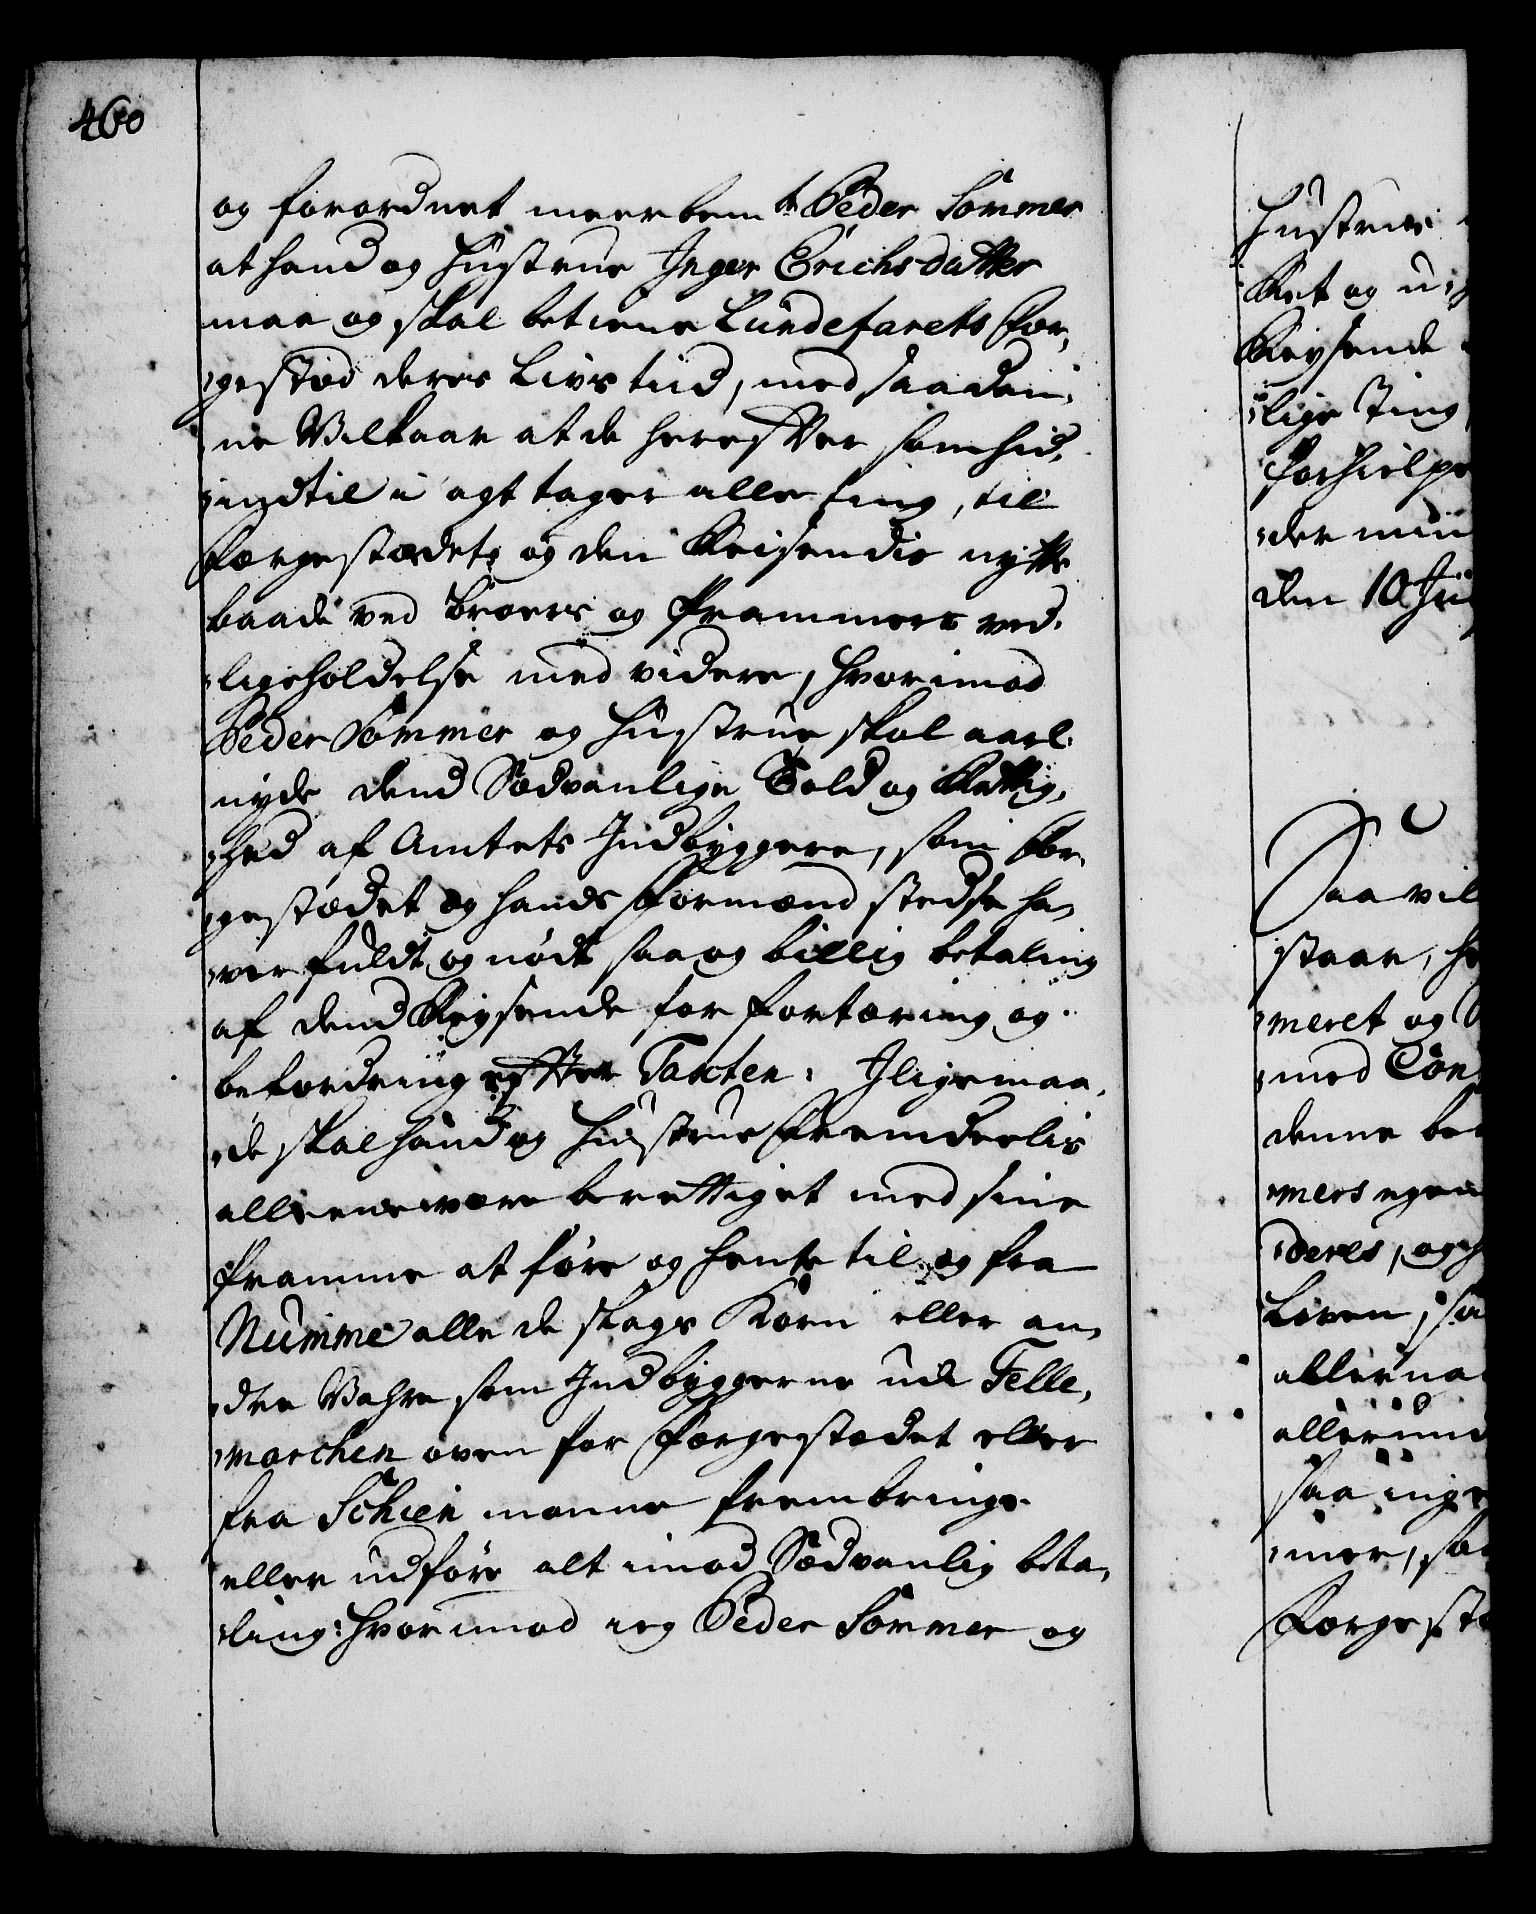 460
og forordnet meerbem.te Peder Sommer
at hand og Hustrue Inger Erichsdatter
maa og skal betiene Lundefarets Fær-
:gestæd deres Livs tiid, med saadan-
:ne Vilkaar at de herefter som hid-
:indtil i agt tager alle ting, til
Færgestædets og den Reisendis nytte
baade ved Broers og Prammers ved-
:ligeholdelse med videre, hvorimod
Peder Sommer og Hustrue skal aarl:
nyde dend Sædvanlige Told og Rettig-
:hed af Amtets Indbyggere, som Fær-
:gestædet og hands Formænd stedse ha-
:ver fuldt og nødt saa og billig betaling
af dend Reysende for fortæring og
befordring efter Taxten. Iligemaa-
:de skal hand og Hustrue Fremdeelis
alleene være berettiget med sine
Pramme at føre og hente til og fra
Numme alle de slags Korn eller an-
:dre Vahre som Indbyggerne udi Telle-
:marchen oven for Færgestædet eller
fra Schien monne frembringe
eller udføre alt imod Sædvanlig beta-
:ling: hvorimod ieg Peder Sommer og
Hustrue
Ret og u
Reysende
:lige Ting
Forhielpe
:der min
den 10 Ju
Saa vil
staar, h
:meret og
:med Con
denne be
:mers egen
:deres, og h
Loven, sa
allerna
allerund
saa inge
:mer, sa
Færgestæ